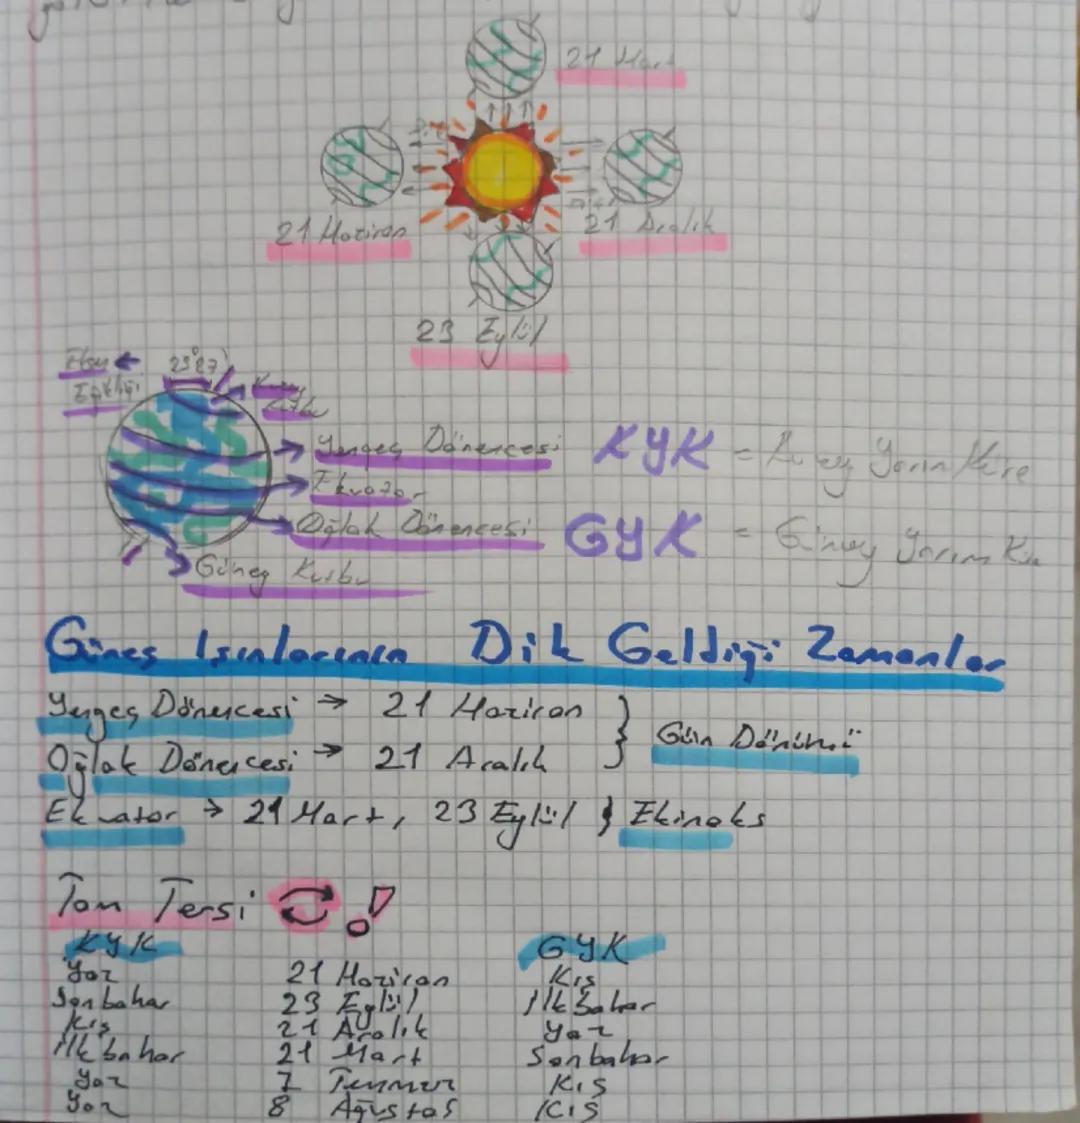 21 Mart
21 Haziran
21 Aralık
23 Eylül
23°27'
Eksen
Eğikliği
Kuzey
Kutbu
Yengeç Dönencesi
Ekvator
Oğlak Dönencesi
Güney Kutbu
KYK = Kuzey Yarım Küre
GYK = Güney Yarım
Güneş Işınlarının Dik Geldiği Zamanlar
Yengeç Dönencesi → 21 Haziran
Oğlak Dönencesi → 21 Aralık
} Gün Dönümü
Ekvator → 21 Mart, 23 Eylül } Ekinoks
Tam Tersi !
KYK GYK
Yaz 21 Haziran Kış
Sonbahar 23 Eylül İlkbahar
Kış 21 Aralık Yaz
İlkbahar 21 Mart Sonbahar
Yaz 7 Temmuz Kış
Yaz 8 Ağustos Kış